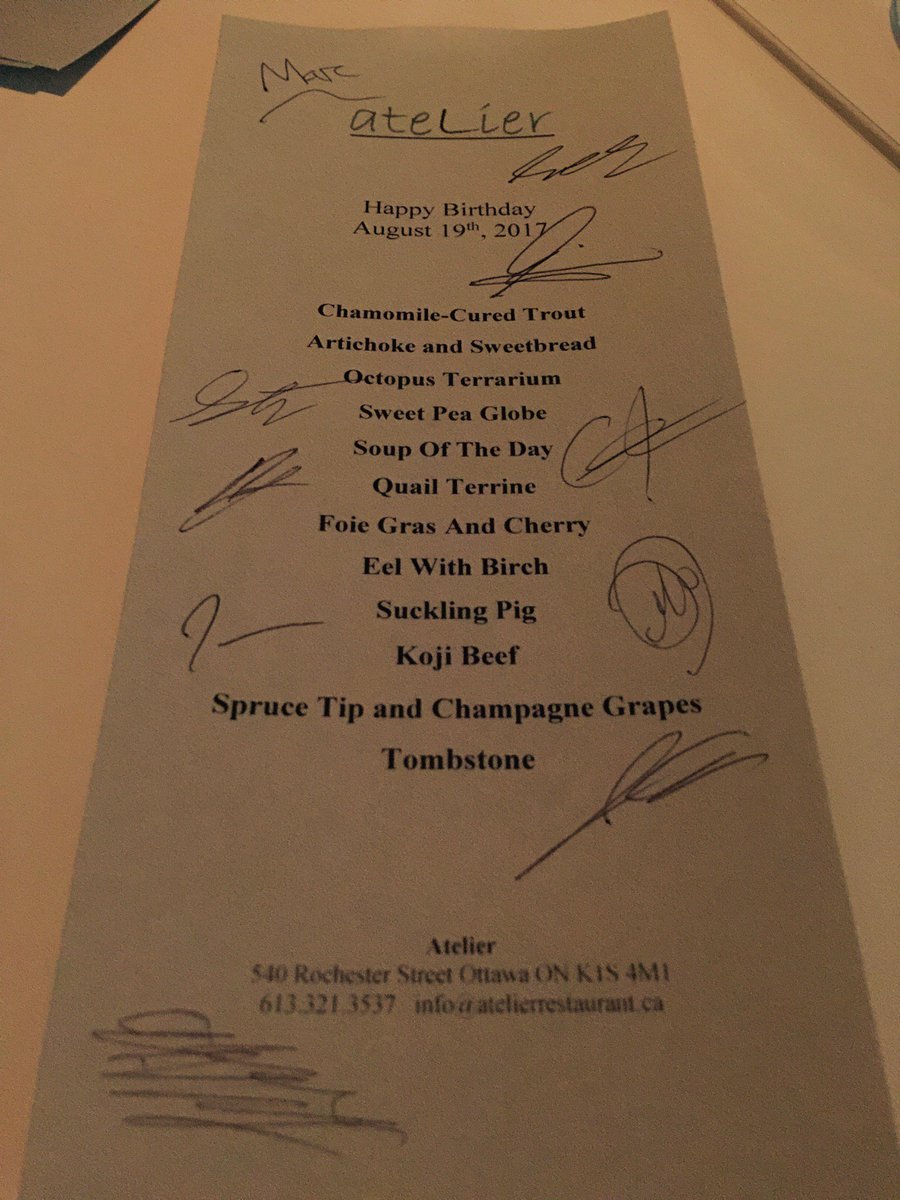 Marc
ateLier
Happy Birthday
August 19th, 2017
Chamomile-Cured Trout
Artichoke and Sweetbread
Octopus Terrarium
Sweet Pea Globe
Soup Of The Day
Quail Terrine
Foie Gras And Cherry
Eel With Birch
Suckling Pig
Koji Beef
Spruce Tip and Champagne Grapes
Tombstone
Atelier
540 Rochester Street Ottawa ON K1S 4M1
613.321.3537 info@atelierrestaurant.ca